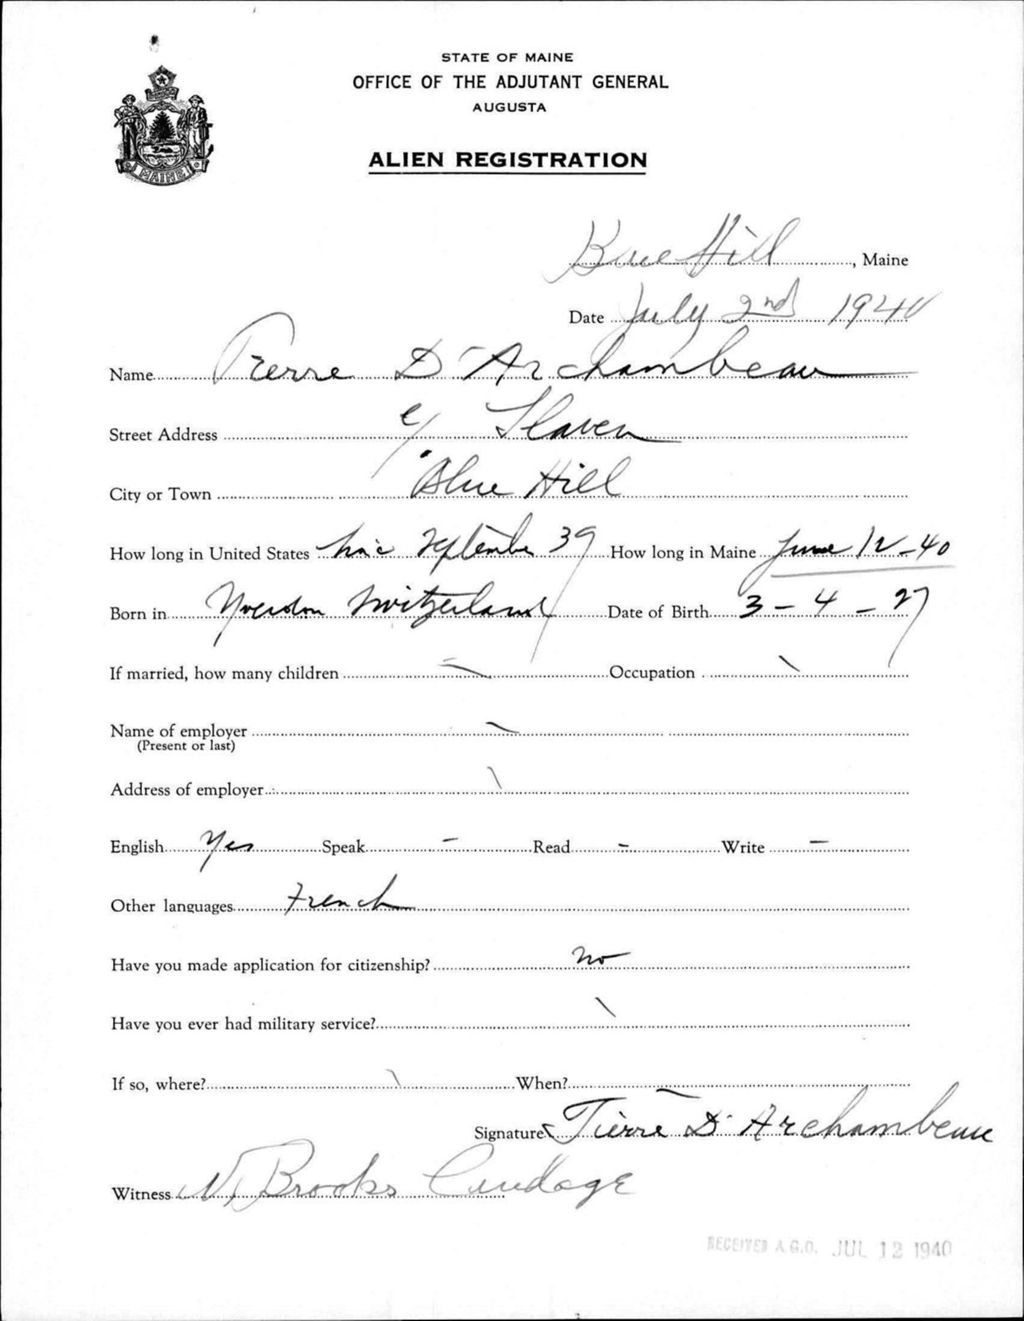 STATE OF MAINE
OFFICE OF THE ADJUTANT GENERAL
AUGUSTA
ALIEN REGISTRATION
MAINE
Blue Hill, Maine
Date July 2nd 1940
Name Pierre D'Archambeau
Street Address c/ Slaven
City or Town Blue Hill
How long in United States September 39 How long in Maine June 12-40
Born in Yverdon Switzerland Date of Birth 3-4-27
If married, how many children - Occupation \
Name of employer -
(Present or last)
Address of employer \
English Yes Speak - Read - Write -
Other languages French
Have you made application for citizenship? No
Have you ever had military service? \
If so, where? \ When? -
Signature Pierre D'Archambeau
Witness N, Brooks Cundage
RECEIVED A.G.O. JUL 12 1940